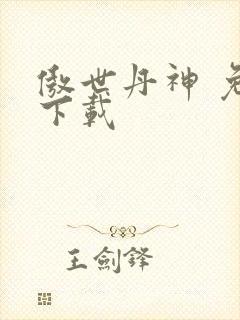 傲世丹神 免
下載
王劍鋒